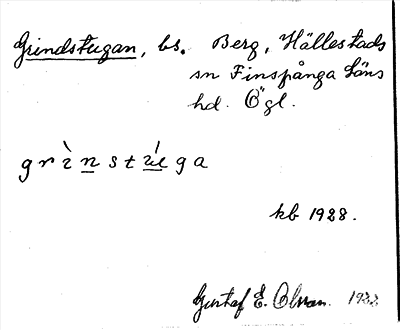 Grindstugan, bs. Berg, Hällestads
sn Finspånga läns
hd. Ögl.
grìnstúga
kb 1928.
Gustaf E. Olsson. 1933